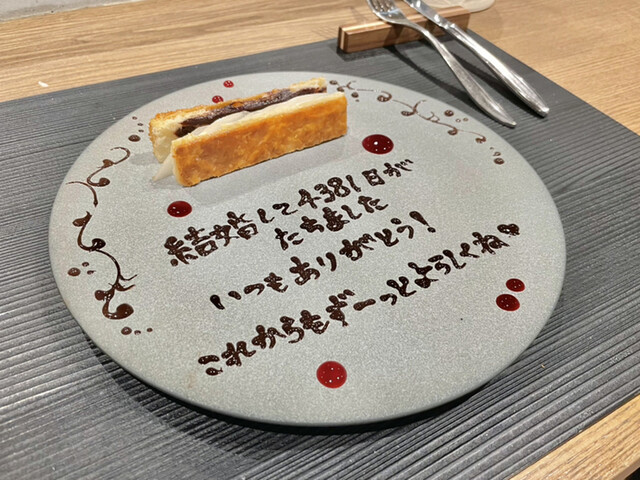 結婚して4381日が
たちました
いつもありがとう!
これからもずーっとよろしくね♥